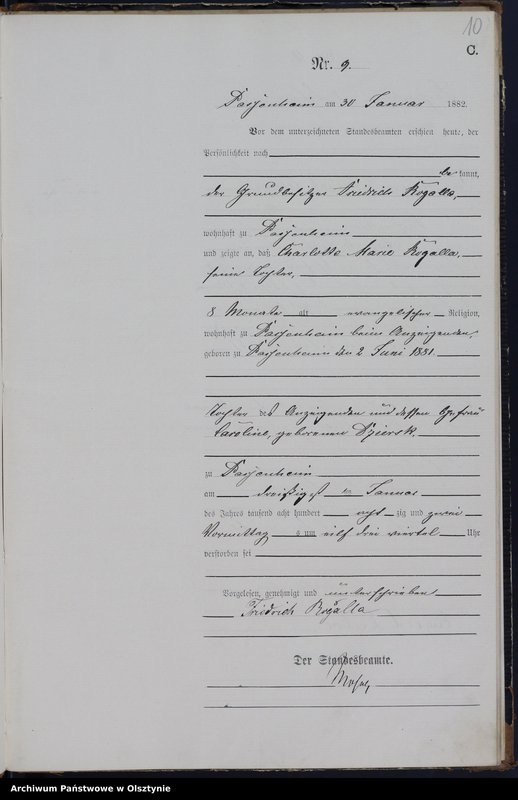 10
C.
Nr. 9.
Passenheim am 30 Januar 1882.
Vor dem unterzeichneten Standesbeamten erschien heute, der
Persönlichkeit nach
be kannt,
der Grundbesitzer Friedrich Rogalla,
wohnhaft zu Passenheim
und zeigte an, daß Charlotte Marie Rogalla,
seine Tochter,
8 Monate alt evangelischer Religion,
wohnhaft zu Passenheim beim Anzeigenden,
geboren zu Passenheim den 2 Juni 1881.
Tochter des Anzeigenden und dessen Ehefrau
Caroline, geborenen
zu Passenheim
am dreißigst en Januar
des Jahres tausend acht hundert acht zig und zwei
Vormittag s um eilf drei viertel Uhr
verstorben sei
Vorgelesen, genehmigt und unterschrieben
Friedrich Rogalla
Der Standesbeamte.
Archiwum Państwowe w Olsztynie